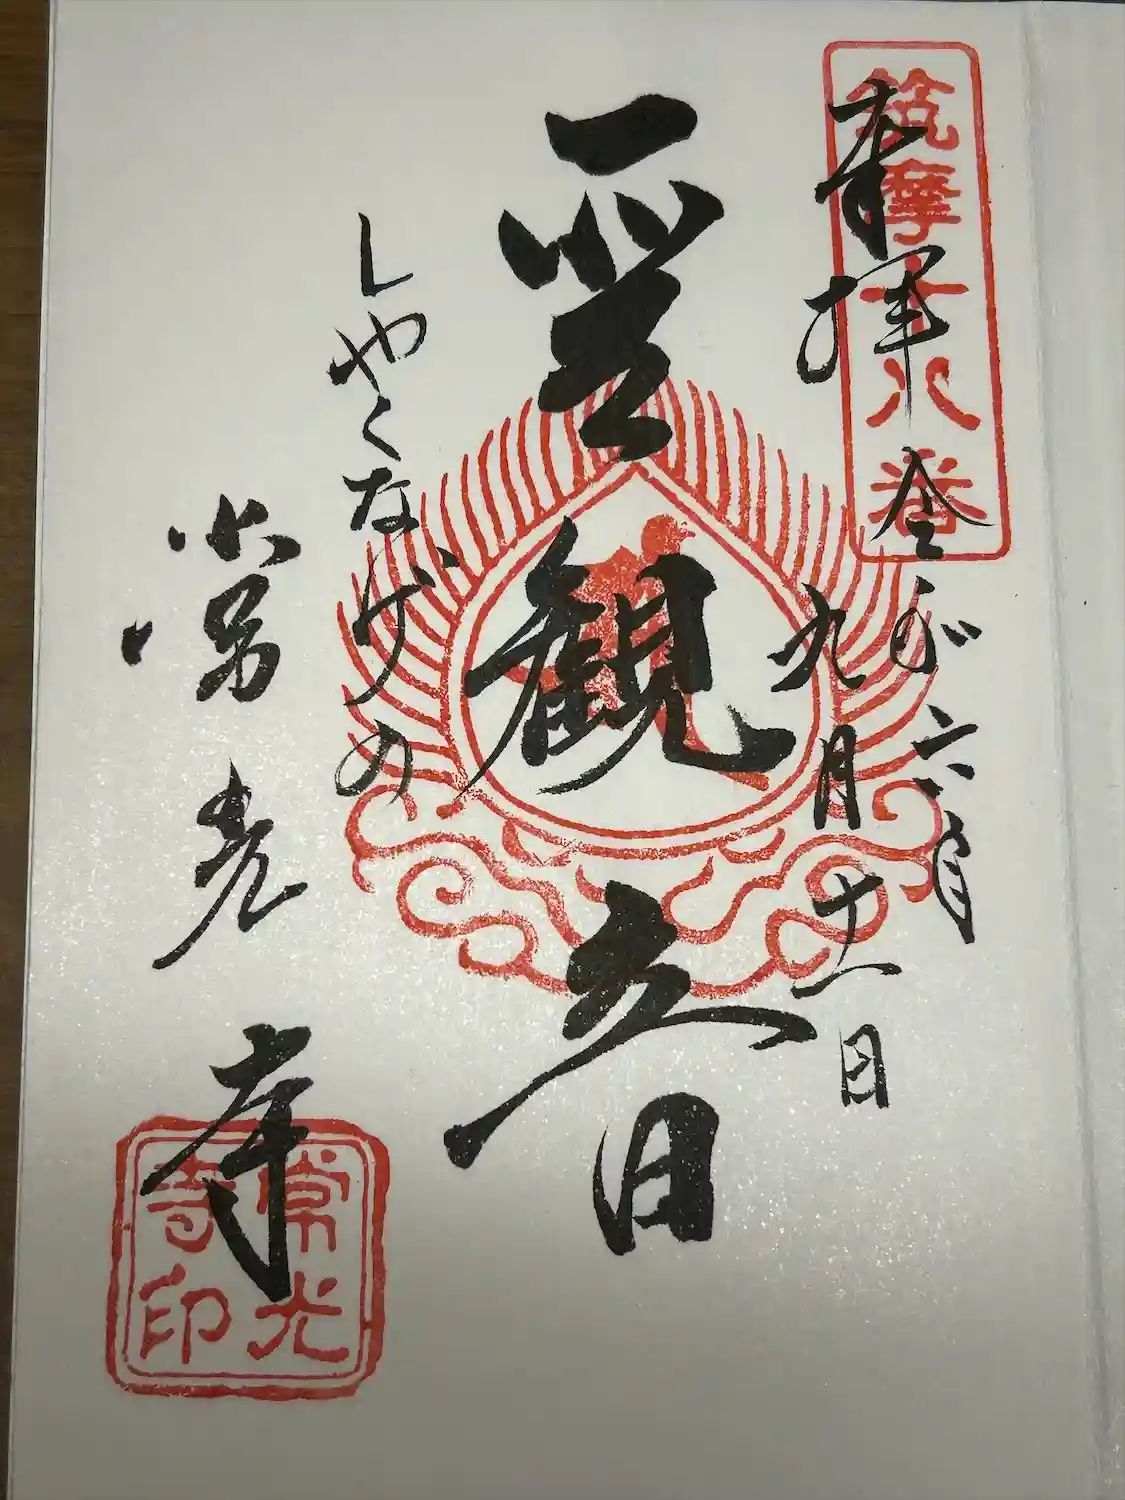 筑摩十八番
奉拝
令和六年
九月十一日
観音
しやくなげの
常光寺
常光寺印